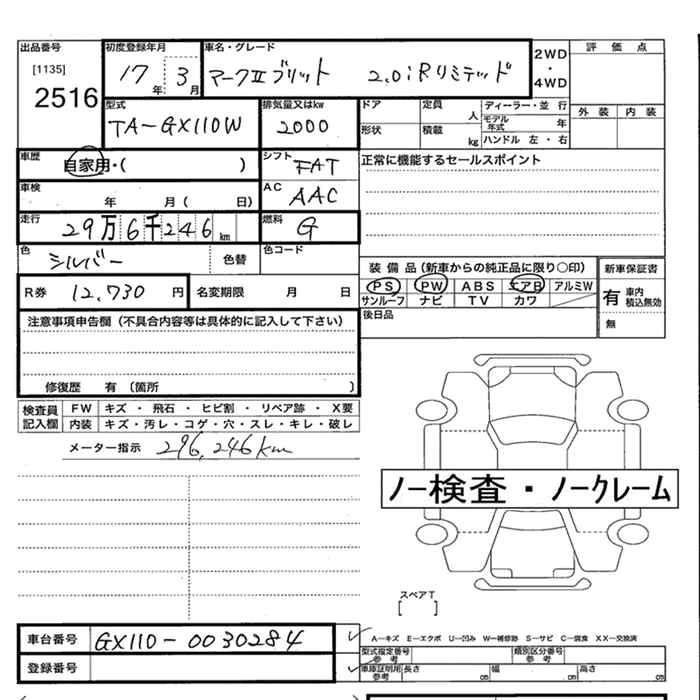 出品番号 初度登録年月 車名・グレード 2WD・4WD 評価点
[1135] 17年 3月 マークIIブリット 2.0iRリミテッド
2516 外装 内装
型式 排気量又はkw ドア 定員 人 ディーラー・並行
TA-GX110W 2000 形状 積載 kg モデル年式 年
ハンドル 左・右
車歴 自家用・( ) シフト FAT 正常に機能するセールスポイント
車検 年 月( 日) AC AAC
走行 29万6千246km 燃料 G
色 シルバー 色替 色コード
装備品(新車からの純正品に限り○印) 新車保証書
R券 12,730円 名変期限 月 日 PS PW ABS エアB アルミW 有 車内積込無効
サンルーフ ナビ TV カワ 無
注意事項申告欄(不具合内容等は具体的に記入して下さい) 後日品
修復歴 有(箇所 )
検査員記入欄 FW キズ・飛石・ヒビ割・リペア跡・X要
内装 キズ・汚レ・コゲ・穴・スレ・キレ・破レ
メーター指示 296,246km
ノー検査・ノークレーム
スペアT
[ ]
車台番号 GX110-0030284 A-キズ E-エクボ U-凹み W-補修跡 S-サビ C-腐食 XX-交換済
型式指定番号 参考 類別区分番号 参考
登録番号 車庫証明用 参考 長さ cm 幅 cm 高さ cm